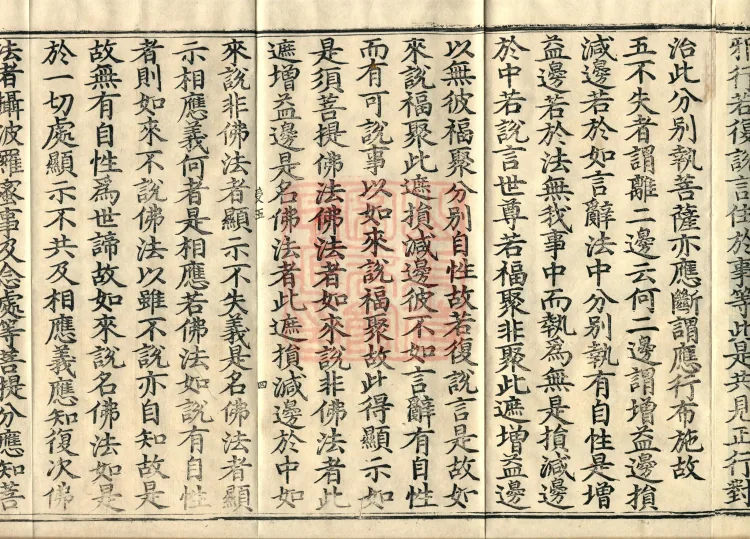 邪行若復說言住於事等此是共見正行對
治此分別執菩薩亦應斷謂應行布施故
五不失者謂離二邊云何二邊謂增益邊損
減邊若於如言辭法中分別執有自性是增
益邊若於法無我事中而執爲無是損減邊
於中若說言世尊若福聚非聚此遮增益邊
以無彼福聚分別自性故若復說言是故如
來說福聚此遮損減邊彼不如言辭有自性
而有可說事以如來說福聚故此得顯示如
是須菩提佛法佛法者如來說非佛法者此
遮增益邊是名佛法者此遮損減邊於中如
來說非佛法者顯示不失義是名佛法者顯
示相應義何者是相應若佛法如說有自性
者則如來不說佛法以雖不說亦自知故是
故無有自性爲世諦故如來說名佛法如是
於一切處顯示不共及相應義應知復次佛
法者攝波羅蜜事及念處等菩提分應知菩
四